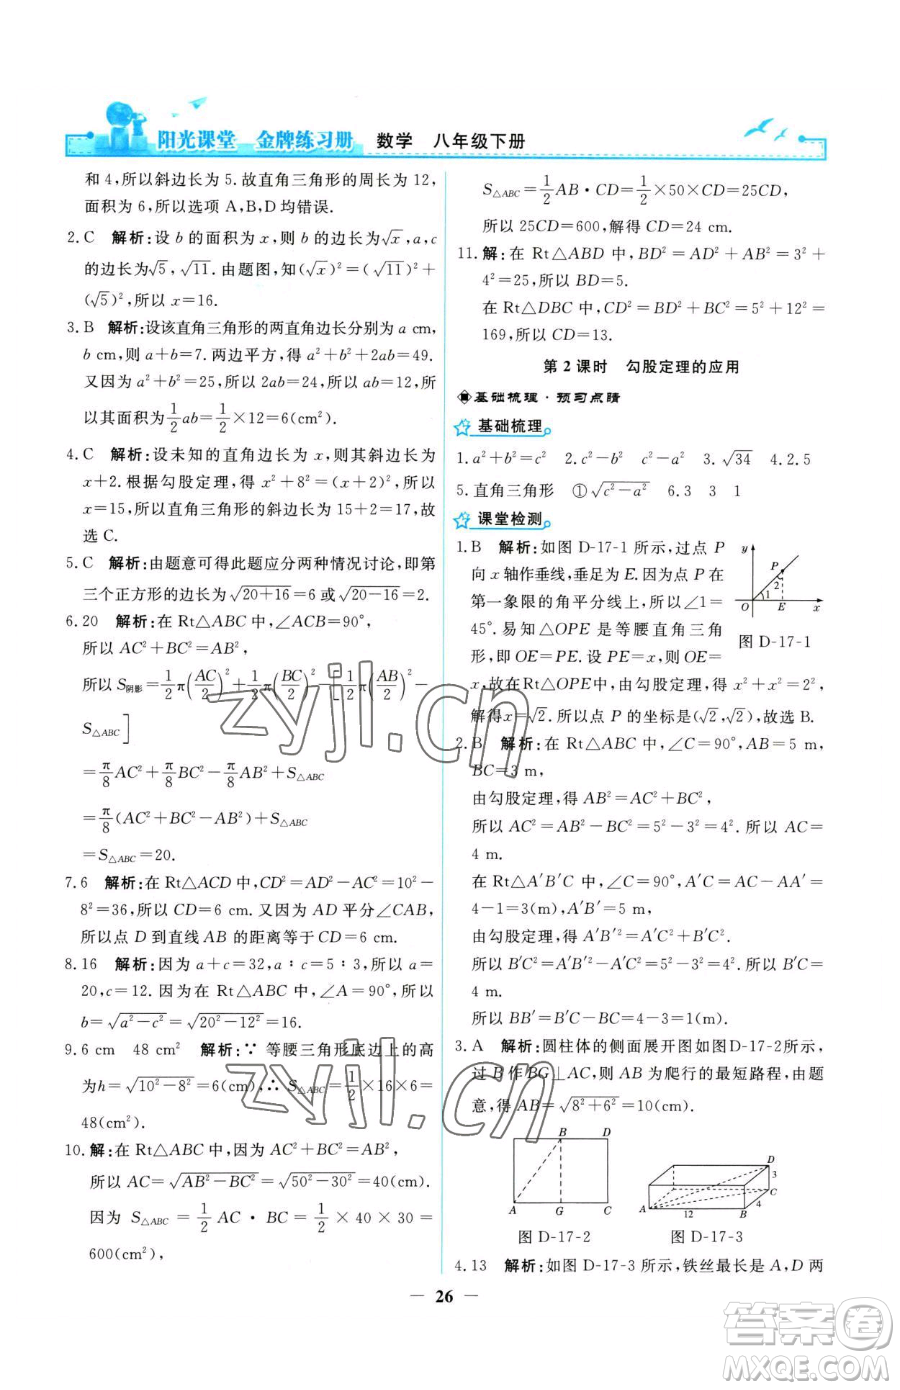 阳光课堂 金牌练习册 数学 八年级下册
和 4,所以斜边长为 5.故直角三角形的周长为 12,
面积为 6,所以选项 A,B,D 均错误.
2.C 解析:设 b 的面积为 x,则 b 的边长为√x,a,c
的边长为√5,√11.由题图,知(√x)²=(√11)²+
(√5)²,所以 x=16.
3.B 解析:设该直角三角形的两直角边长分别为 a cm,
b cm,所以 a+b=7.两边平方,得 a²+b²+2ab=49.
又因为 a²+b²=25,所以 2ab=24,所以 ab=12,所
以其面积为1/2ab=1/2×12=6(cm²).
4.C 解析:设未知的直角边长为 x,则其斜边长为
x+2.根据勾股定理,得 x²+8²=(x+2)²,解得
x=15,所以直角三角形的斜边长 15+2=17,故
选 C.
5.C 解析:由题意可得此题应分两种情况讨论,即第
三个正方形的边长为√(20+16)=6 或√(20-16)=2.
6.20 解析:在 Rt△ACB 中,∠ACB=90°,
所以 AC²+BC²=AB²,
所以 S阴影=1/2π(AC/2)²+1/2π(BC/2)²-[1/2π(AB/2)²-
S△ABC]
=π/8AC²+π/8BC²-π/8AB²+S△ABC
=π/8(AC²+BC²-AB²)+S△ABC
=S△ABC=20.
7.6 解析:在 Rt△ACD 中,CD²=AD²-AC²=10²-
8²=36,所以 CD=6 cm.又因为 AD 平分∠CAB,
所以点 D 到直线 AB 的距离等于 CD=6 cm.
8.16 解析:因为 a+c=32,a∶c=5∶3,所以 a=
20,c=12.因为在 Rt△ABC 中,∠A=90°,所以
b=√(a²-c²)=√(20²-12²)=16.
9.6 cm 48 cm² 解析:∵ 等腰三角形底边上的高
为 h=√(10²-8²)=6(cm),∴ S△ABC=1/2×16×6=
48(cm²).
10.解:在 Rt△ABC 中,因为 AC²+BC²=AB²,所
以 AC=√(AB²-BC²)=√(50²-30²)=40(cm).
因为 S△ABC=1/2AC·BC=1/2×40×30=
600(cm²),
S△ABC=1/2AB·CD=1/2×50×CD=25CD,
所以 25CD=600,解得 CD=24 cm.
11.解:在 Rt△ABD 中,BD²=AD²+AB²=3²+
4²=25,所以 BD=5.
在 Rt△DBC 中,CD²=BD²+BC²=5²+12²=
169,所以 CD=13.
第 2 课时 勾股定理的应用
基础梳理·预习点睛
基础梳理
1.a²+b²=c² 2.c²-b² c²-a² 3.√34 4.2.5
5.直角三角形 ①√(c²-a²) 6.3 3 1
课堂检测
1.B 解析:如图 D-17-1 所示,过点 P
向 x 轴作垂线,垂足为 E.因为点 P 在
第一象限的角平分线上,所以∠1=
45°.易知△OPE 是等腰直角三角
形,所以 OE=PE.设 PE=x,则 OE=
x.故在 Rt△OPE 中,由勾股定理,得 x²+x²=2²,
解得 x=√2.所以点 P 的坐标是(√2,√2),故选 B.
y P 2 1 O E x
图 D-17-1
2.B 解析:在 Rt△ABC 中,因为∠C=90°,AB=5 m,
BC=3 m,
由勾股定理,得 AB²=AC²+BC²,
所以 AC²=AB²-BC²=5²-3²=4²,所以 AC=
4 m.
在 Rt△A′B′C 中,∠C=90°,A′C=AC-AA′=
4-1=3(m),A′B′=5 m,
由勾股定理,得 A′B′²=A′C²+B′C².
所以 B′C²=A′B′²-A′C²=5²-3²=4²,所以 B′C=
4 m.
所以 BB′=B′C-BC=4-3=1(m).
3.A 解析:圆柱体的侧面展开图如图D-17-2所示,
过 B 作 BG⊥AC,则 AB 为爬行的最短路程,由题
意,得 AB=√(8²+6²)=10(cm).
B D A G C
图 D-17-2
D 3 C 4 A 12 B
图 D-17-3
4.13 解析:如图 D-17-3 所示,铁丝最长是 A,D 两
26
zyjl.cn
zyjl.cn
答案圈
MXQE.COM